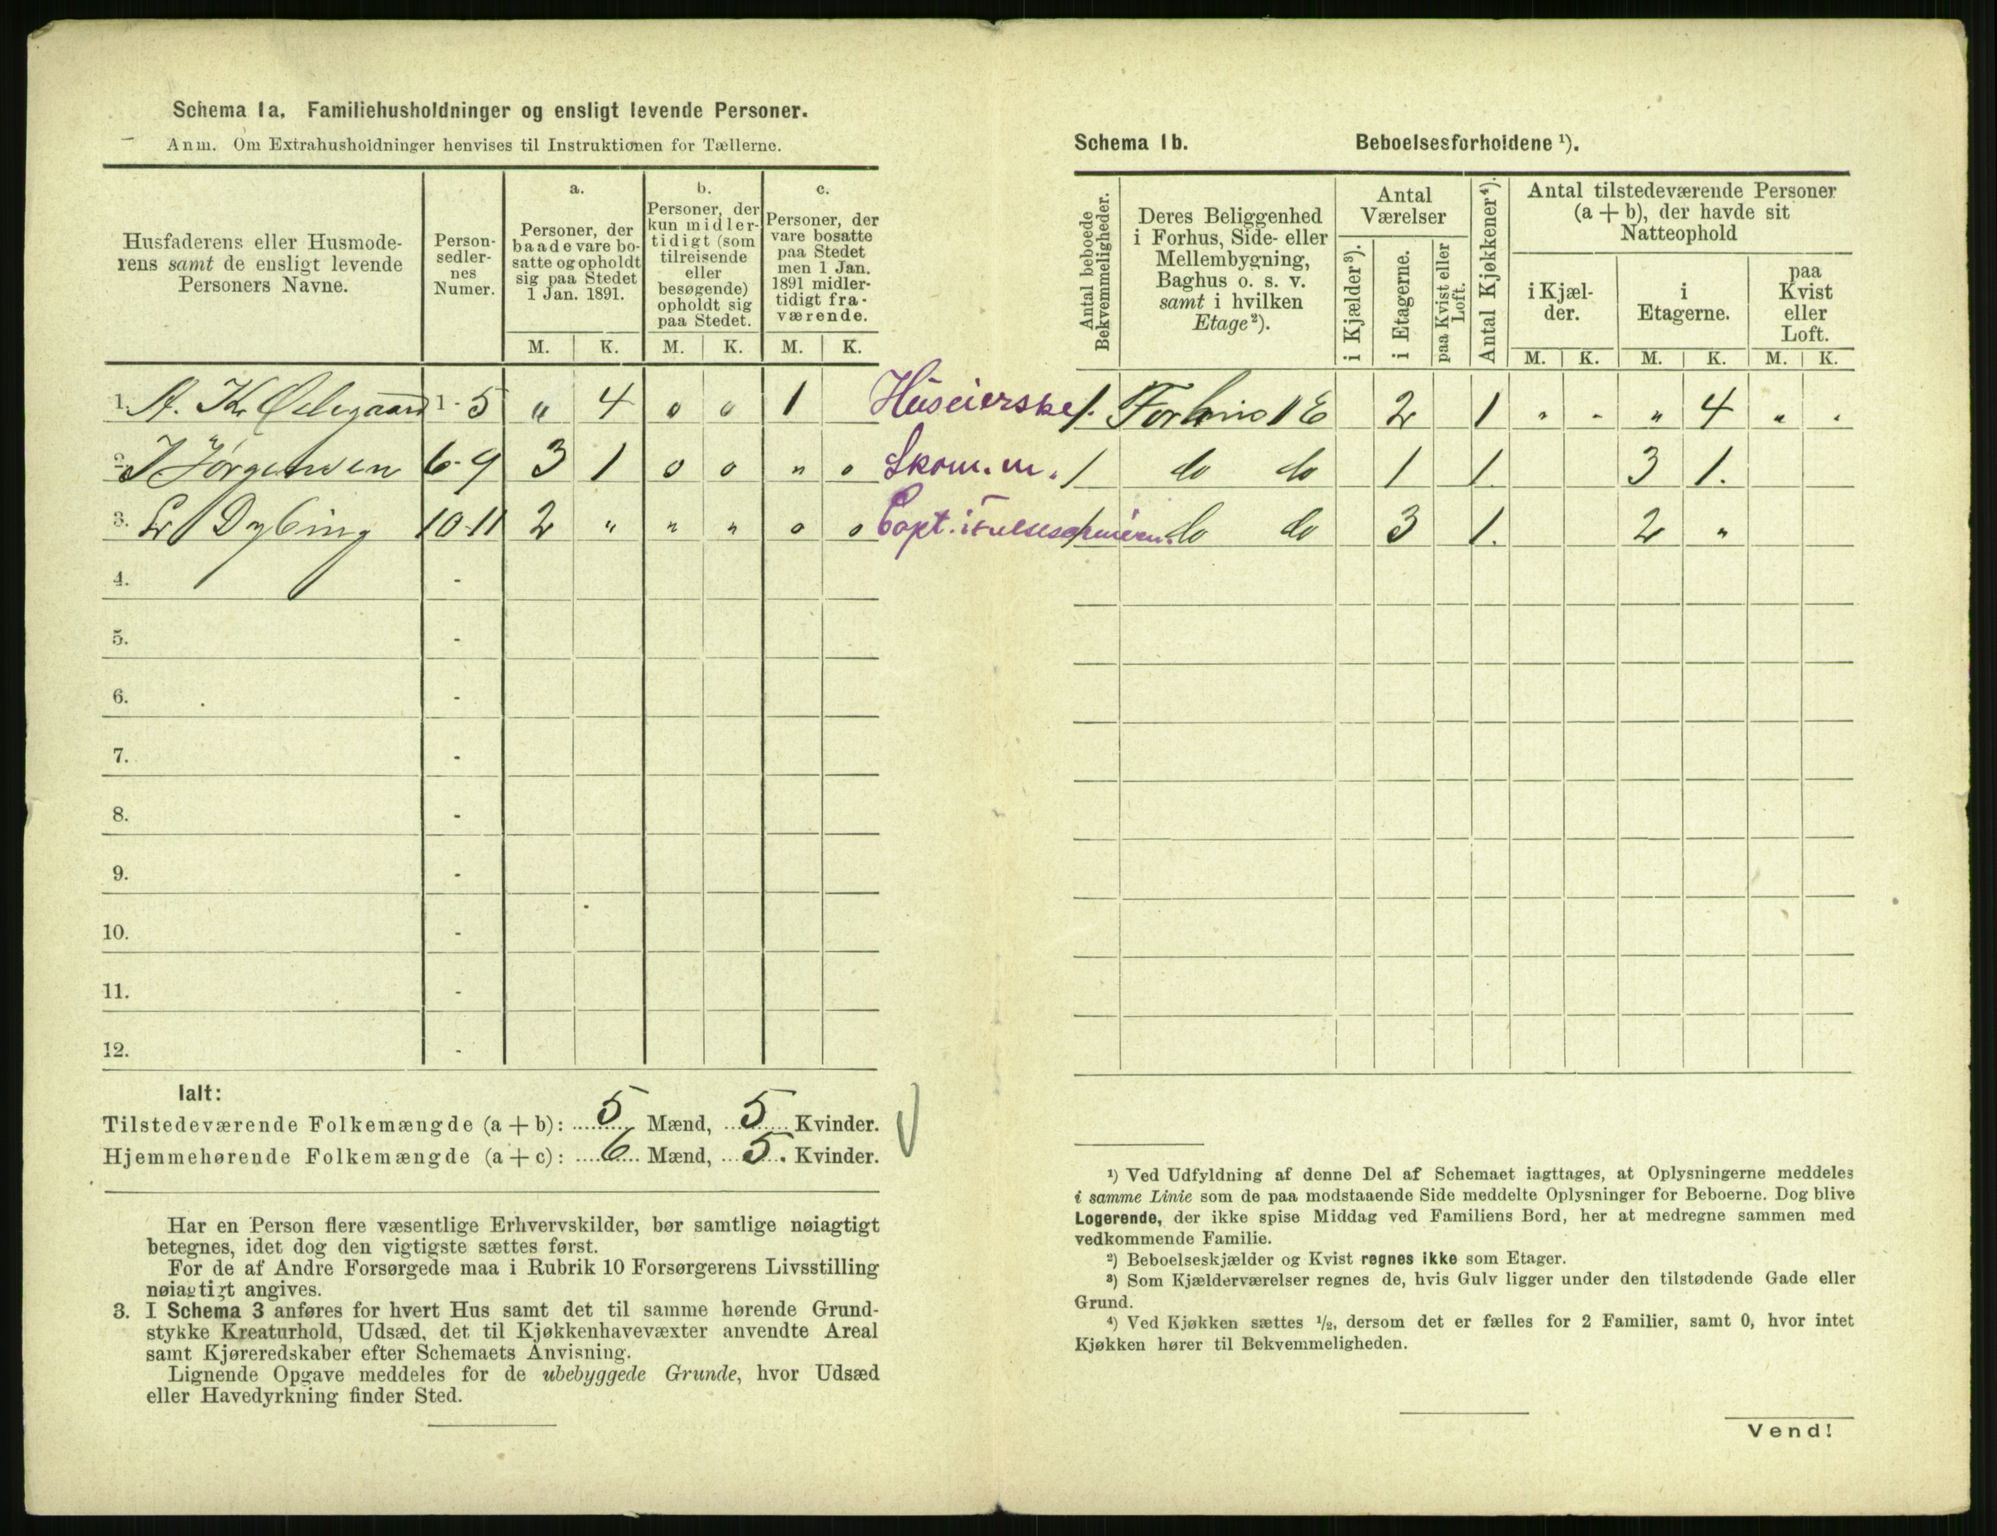 Schema 1a. Familiehusholdninger og ensligt levende Personer.
Anm. Om Extrahusholdninger henvises til Instruktionen for Tællerne.
Husfaderens eller Husmode-
rens samt de ensligt levende
Personers Navne.
Person-
sedler-
nes
Numer.
a.
Personer, der
baade vare bo-
satte og opholdt
sig paa Stedet
1 Jan. 1891.
b.
Personer, der
kun midler-
tidigt (som
tilreisende
eller
besøgende)
opholdt sig
paa Stedet.
c.
Personer, der
vare bosatte
paa Stedet
men 1 Jan.
1891 midler-
tidigt fra-
værende.
M. K. M. K. M. K.
1. A. Kr. Ødegaard 1-5 " 4 o o 1 Huseierske
2. J Jørgensen 6-9 3 1 o o " o Skom. m.
3. Dybing 10-11 2 " " " o o Capt. i
4. -
5. -
6. -
7. -
8. -
9. -
10. -
11. -
12. -
Ialt:
Tilstedeværende Folkemængde (a + b): 5 Mænd, 5 Kvinder.
Hjemmehørende Folkemængde (a + c): 6 Mænd, 5 Kvinder.
Har en Person flere væsentlige Erhvervskilder, bør samtlige nøiagtigt
betegnes, idet dog den vigtigste sættes først.
For de af Andre Forsørgede maa i Rubrik 10 Forsørgerens Livsstilling
nøiagtigt angives.
3. I Schema 3 anføres for hvert Hus samt det til samme hørende Grund-
stykke Kreaturhold, Udsæd, det til Kjøkkenhavevæxter anvendte Areal
samt Kjøreredskaber efter Schemaets Anvisning.
Lignende Opgave meddeles for de ubebyggede Grunde, hvor Udsæd
eller Havedyrkning finder Sted.
Schema 1b. Beboelsesforholdene ¹).
Antal beboede
Bekvemmeligheder.
Deres Beliggenhed
i Forhus, Side- eller
Mellembygning,
Baghus o. s. v.
samt i hvilken
Etage²).
Antal
Værelser
i Kjælder³).
i Etagerne.
paa Kvist eller
Loft.
Antal Kjøkkener⁴).
Antal tilstedeværende Personer
(a + b), der havde sit
Natteophold
i Kjæl-
der.
i
Etagerne.
paa
Kvist
eller
Loft.
M. K. M. K. M. K.
1 Forhus 1 E 2 1 " " " 4 " "
1 do do 1 1. 3 1.
1 do do 3 1. 2 "
¹) Ved Udfyldning af denne Del af Schemaet iagttages, at Oplysningerne meddeles
i samme Linie som de paa modstaaende Side meddelte Oplysninger for Beboerne. Dog blive
Logerende, der ikke spise Middag ved Familiens Bord, her at medregne sammen med
vedkommende Familie.
²) Beboelseskjælder og Kvist regnes ikke som Etager.
³) Som Kjælderværelser regnes de, hvis Gulv ligger under den tilstødende Gade eller
Grund.
⁴) Ved Kjøkken sættes ½, dersom det er fælles for 2 Familier, samt 0, hvor intet
Kjøkken hører til Bekvemmeligheden.
Vend!